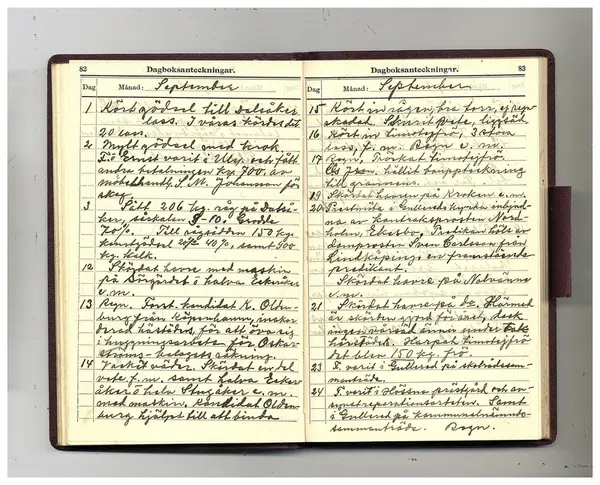 82
Dagboksanteckningar.
Dag Månad: September
1 Kört gödsel till Dalsåker
lass. I våras kördes dit
20 lass.
2 Mylt gödsel med krok
T.o Ernst varit i Ulr. och fått
andra betalningen kr. 700. av
möbelhandl. S. M. Johansson för
skog.
3 Sått 206 kg. råg på Dalså-
ker, såskalen 5-10. Grodde
70%. Till rågsådden 150 kg.
konstgödsel 20% 40%, samt 900
kg. kalk.
12 Skördat havre med maskin
på Sörgärdet i halva Eekeråker
e.m.
13 Regn. Forst. kandidat K. Olden-
burg från Köpenhamn, inskor-
derad hästades för att öva sig
i huggningsarbete för Oskar-
ströms-bolagets räkning.
14 Vackert väder. Skördat en del
vete f.m. samt halva Eeker-
åker o hela Stugåker e.m.
med maskin. Kandidat Olden-
burg hjälpt till att binda
83
Dagboksanteckningar.
Dag Månad: September
15 Kört in rågen, bra torr, ej regn-
skadad. Skurit vete, liggsäd
16 Kört in timotejfrö, 3 stora
lass, f.m. Regn e.m.
17 Regn, Tröskat timotejfrö.
hållit
till grannens.
19 Skördat havren på Kroken e.m.
20 Prostmöte i Gullereds kyrka inbjud-
na av kontraktsprosten Nord-
holm, Ekesbo, Predikan hölls av
domprosten Sven Carlsson från
Linköping, en framstående
predikant.
Skördat havre på Nolvänne
e.m.
21 Skördat havre på do. Härmed
är skörden gjord för året, dock
ingen vårsäd ännu under tak
höstsådd. Harpat timotejfrö
det blev 150 kg. frö.
23 T. varit i Gullered på skolrådssam-
manträde.
24 T. varit i Hössna prästgård och av-
synt reparationsarbeten. Samt
i Gullered på kommunalnämnds-
sammanträde. Regn.